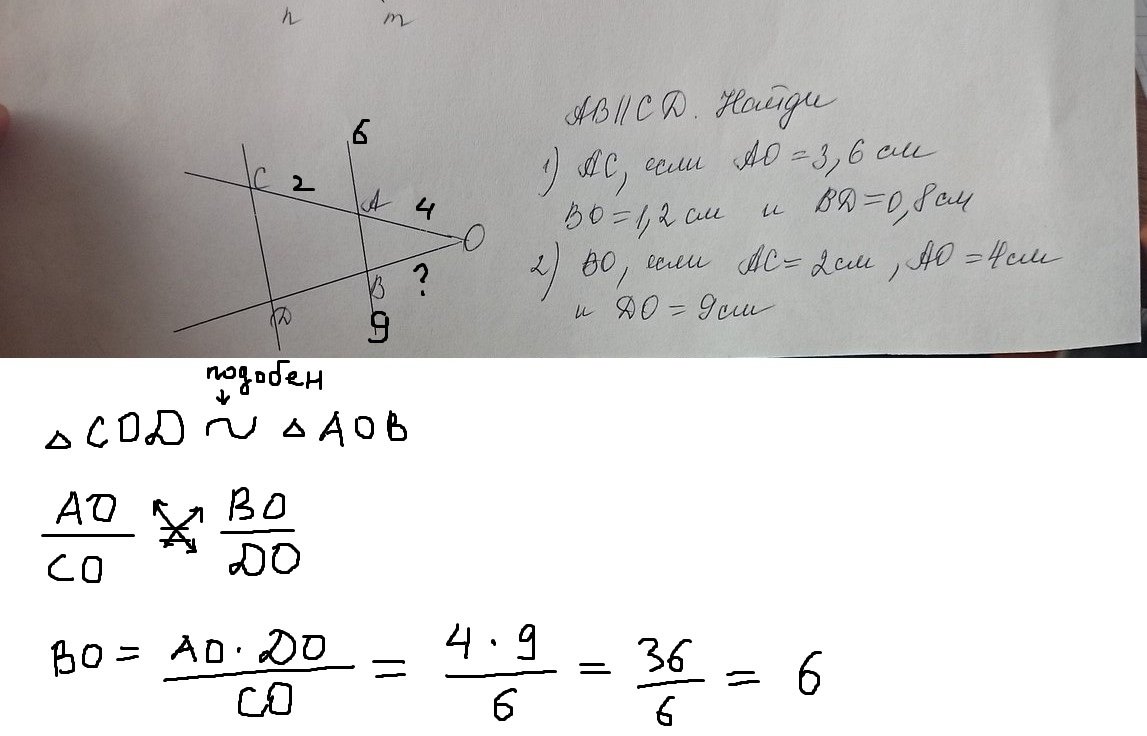 n m
AB||CD. Найди
1) AC, если AO = 3,6 см
BO = 1,2 см и BD = 0,8 см
2) BO, если AC = 2 см, AO = 4 см
и DO = 9 см
6
C 2 A 4 O
B ?
D 9
подобен
↓
△COD ~ △AOB
AO/CO = BO/DO
BO = AO · DO / CO = 4 · 9 / 6 = 36 / 6 = 6